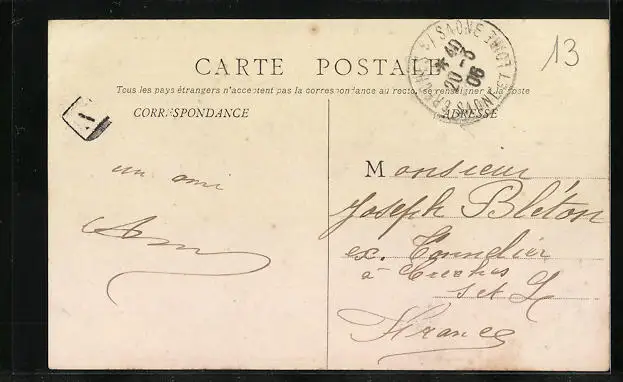 CARTE POSTALE
Tous les pays étrangers n'acceptent pas la correspondance au recto, se renseigner à la poste
CORRESPONDANCE
ADRESSE
20 -3
06
SAONE
13
un ami
Monsieur
Joseph Bléton
ex.
à Crèches
S et L
France